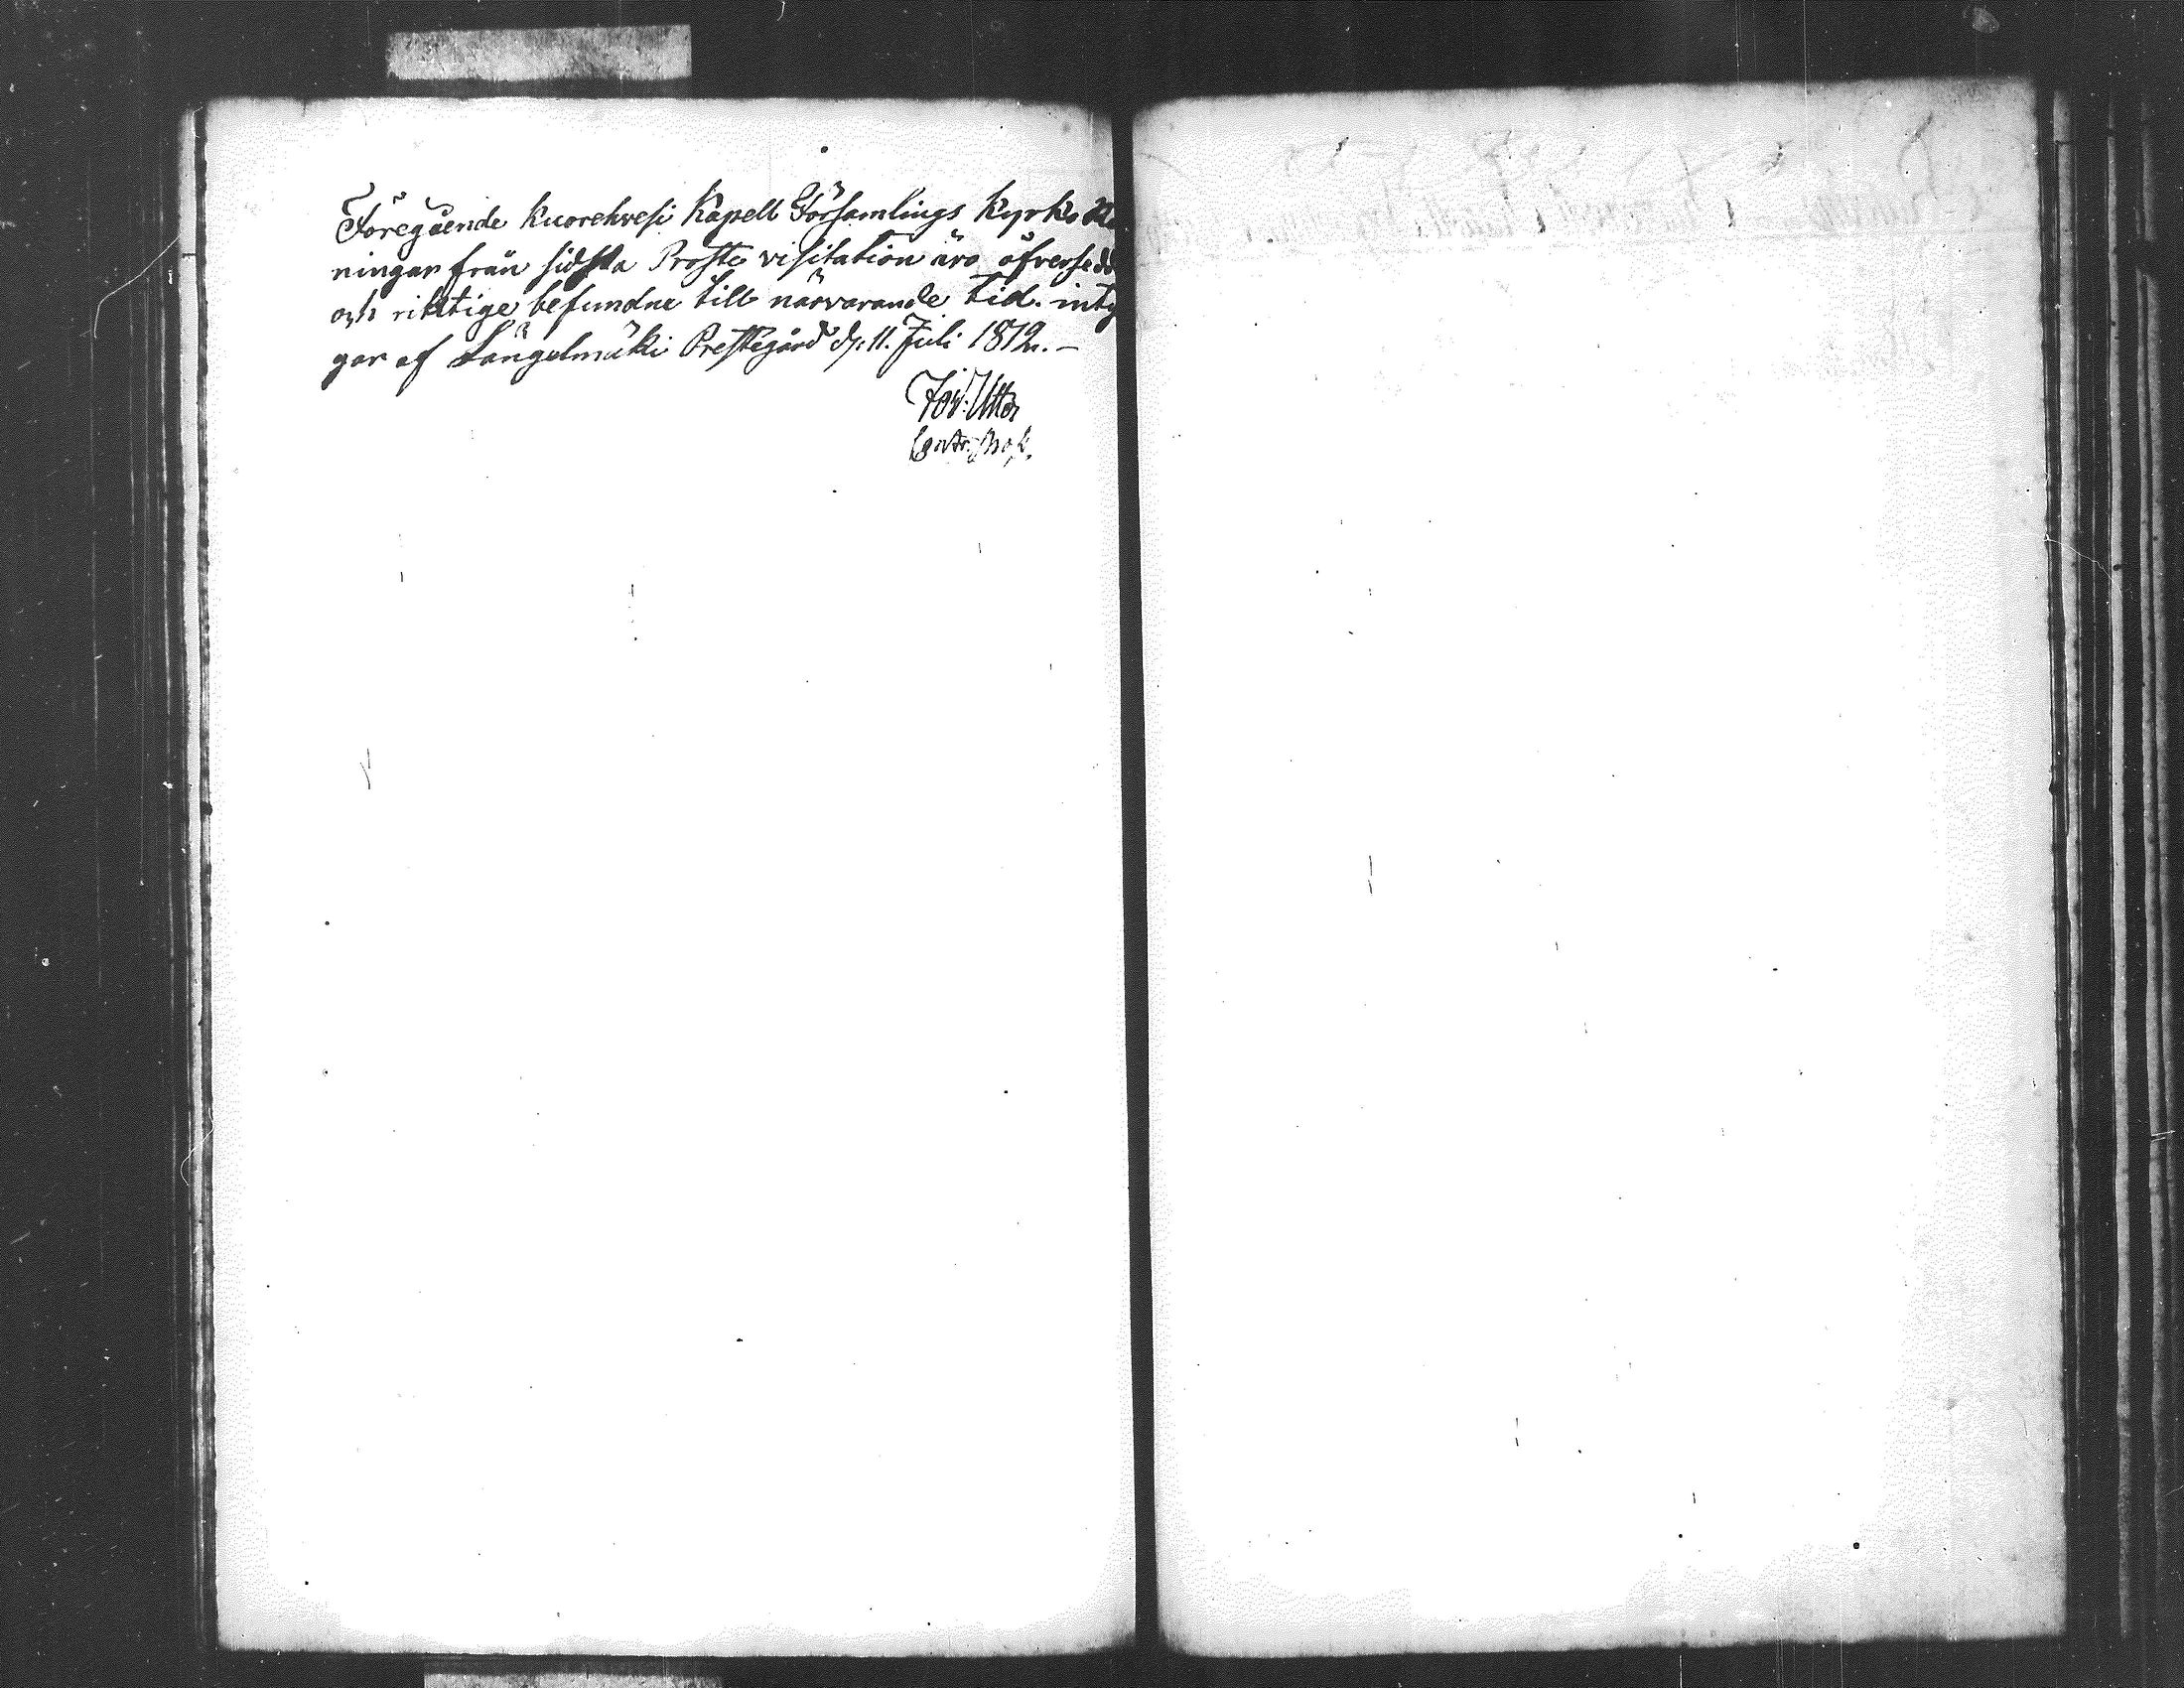 Föregående Kuorehvesi Kapell Församlings Kyrko Rä
ningar från sidsta Proste visitation äro öfversedd
och rikttige befundne till närvarande tid. inty
gar af Längelmäki Prestegård d: 11. Juli 1812. –